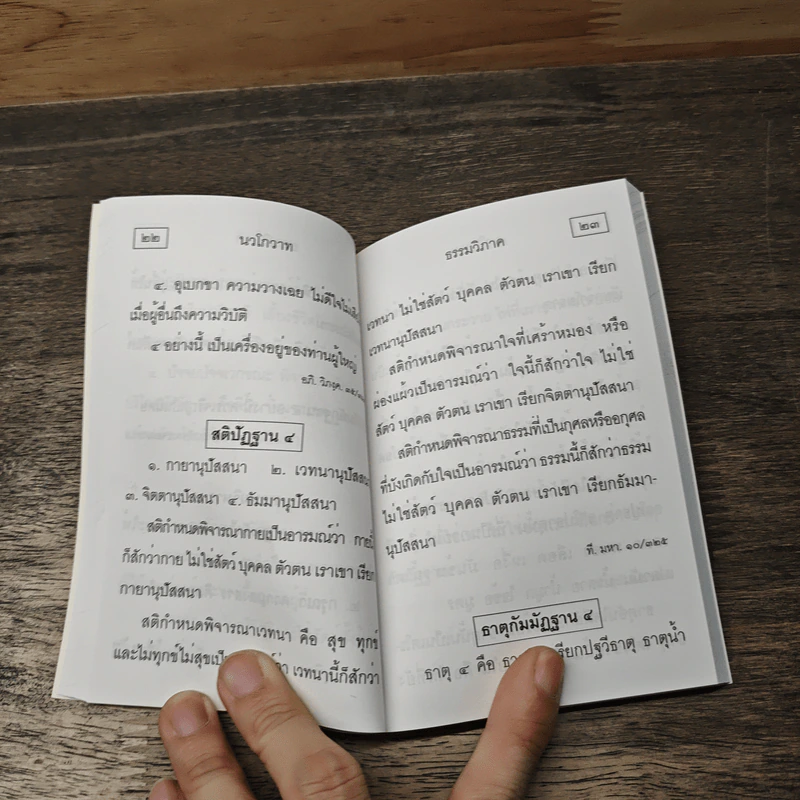 ๒๒
นวโกวาท
๔. อุเบกขา ความวางเฉย ไม่ดีใจไม่เสีย
เมื่อผู้อื่นถึงความวิบัติ
๔ อย่างนี้ เป็นเครื่องอยู่ของท่านผู้ใหญ่
อภิ. วิภงฺค.
สติปัฏฐาน ๔
๑. กายานุปัสสนา ๒. เวทนานุปัสสนา
๓. จิตตานุปัสสนา ๔. ธัมมานุปัสสนา
สติกำหนดพิจารณากายเป็นอารมณ์ว่า กายนี้
ก็สักว่ากาย ไม่ใช่สัตว์ บุคคล ตัวตน เราเขา เรียก
กายานุปัสสนา
สติกำหนดพิจารณาเวทนา คือ สุข ทุกข์
และไม่ทุกข์ไม่สุขเป็น ว่า เวทนานี้ก็สักว่า
ธรรมวิภาค
๒๓
เวทนา ไม่ใช่สัตว์ บุคคล ตัวตน เราเขา เรียก
เวทนานุปัสสนา
สติกำหนดพิจารณาใจที่เศร้าหมอง หรือ
ผ่องแผ้วเป็นอารมณ์ว่า ใจนี้ก็สักว่าใจ ไม่ใช่
สัตว์ บุคคล ตัวตน เราเขา เรียกจิตตานุปัสสนา
สติกำหนดพิจารณาธรรมที่เป็นกุศลหรืออกุศล
ที่บังเกิดกับใจเป็นอารมณ์ว่า ธรรมนี้ก็สักว่าธรรม
ไม่ใช่สัตว์ บุคคล ตัวตน เราเขา เรียกธัมมา-
นุปัสสนา
ที. มหา. ๑๐/๓๒๕
ธาตุกัมมัฏฐาน ๔
ธาตุ ๔ คือ เรียกปฐวีธาตุ ธาตุน้ำ